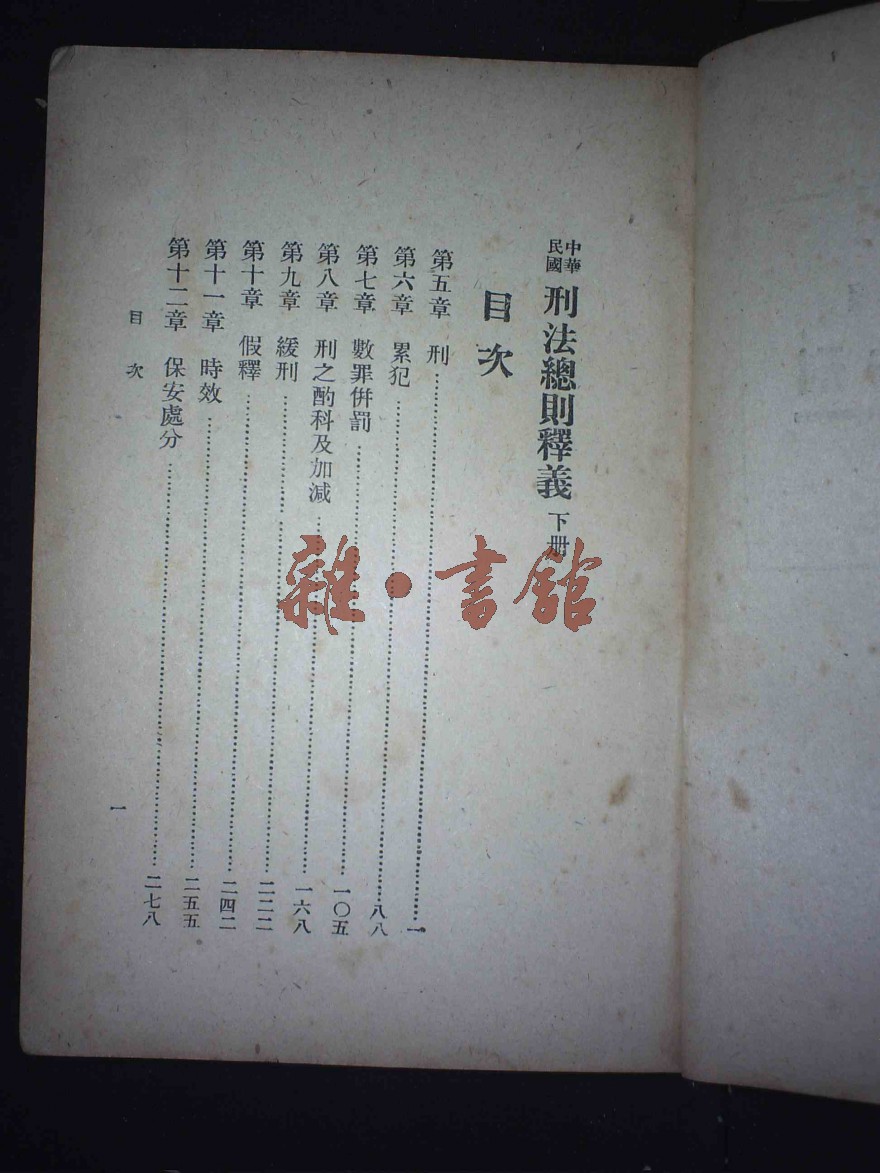 中華民國 刑法總則釋義 下冊
目次
第五章 刑……一
第六章 累犯……八八
第七章 數罪併罰……一〇五
第八章 刑之酌科及加減……一六八
第九章 緩刑……二二二
第十章 假釋……二四二
第十一章 時效……二五五
第十二章 保安處分……二七八
目次
一
雜·書館